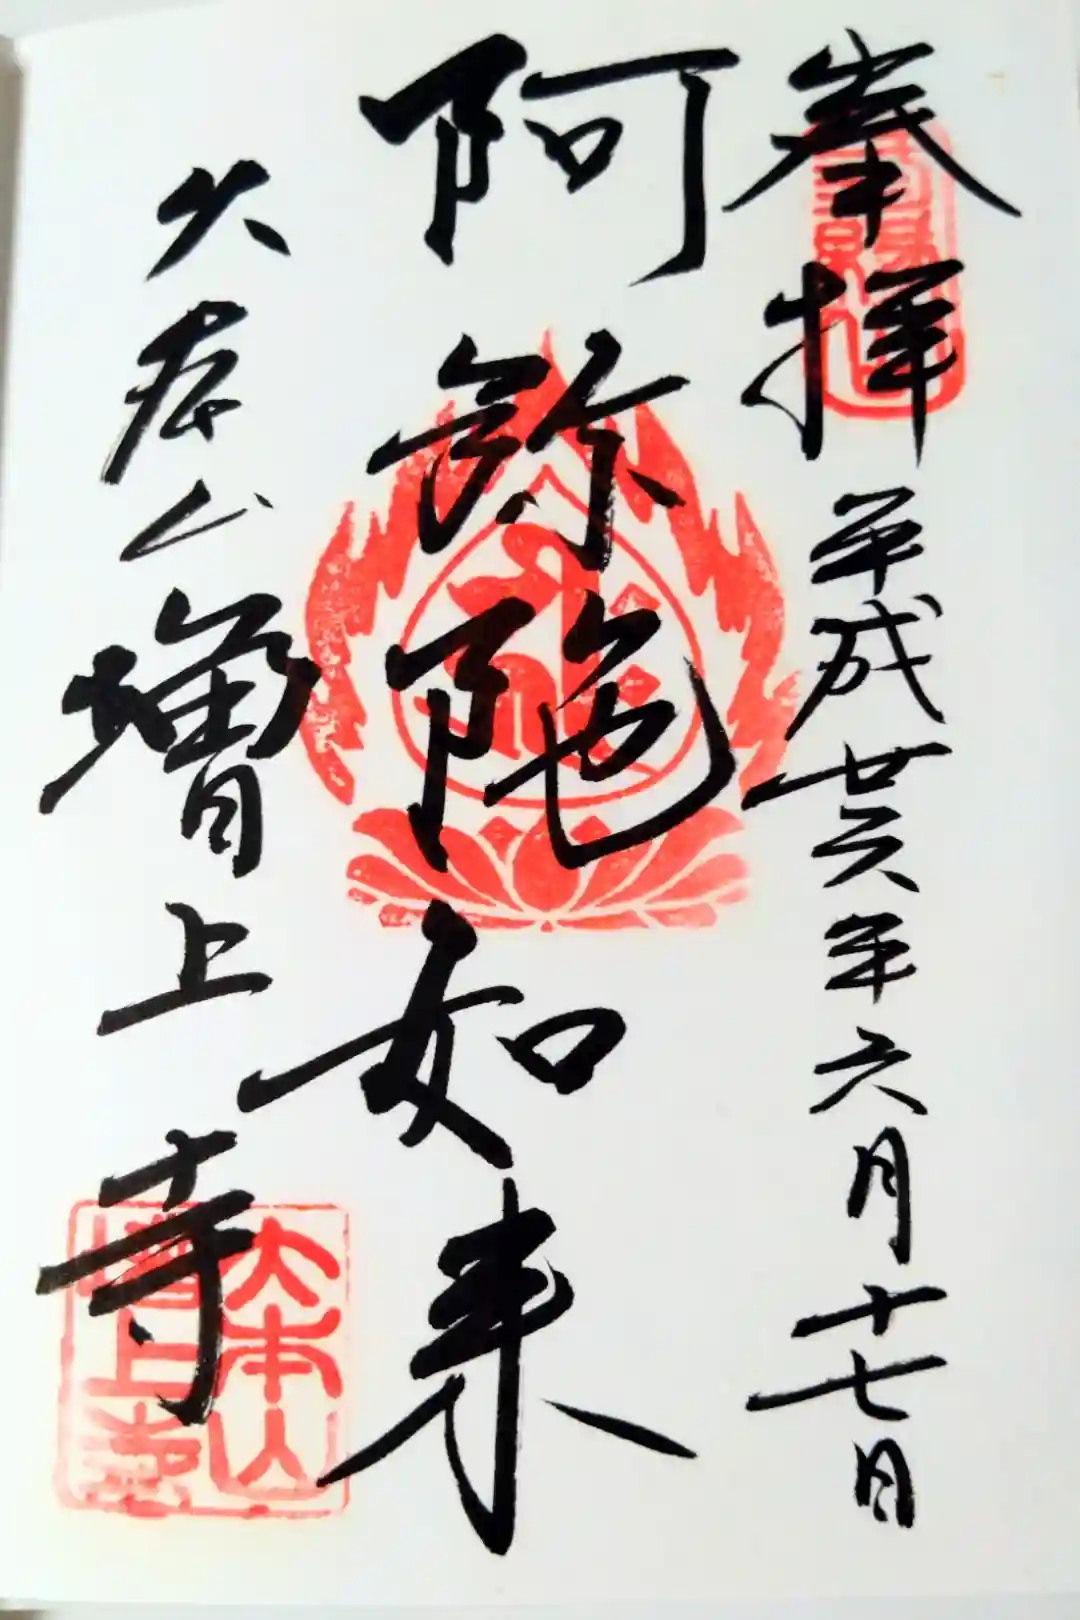 奉拝 平成廿六年六月十七日
阿弥陀如来
大本山 増上寺
大本山
増上寺